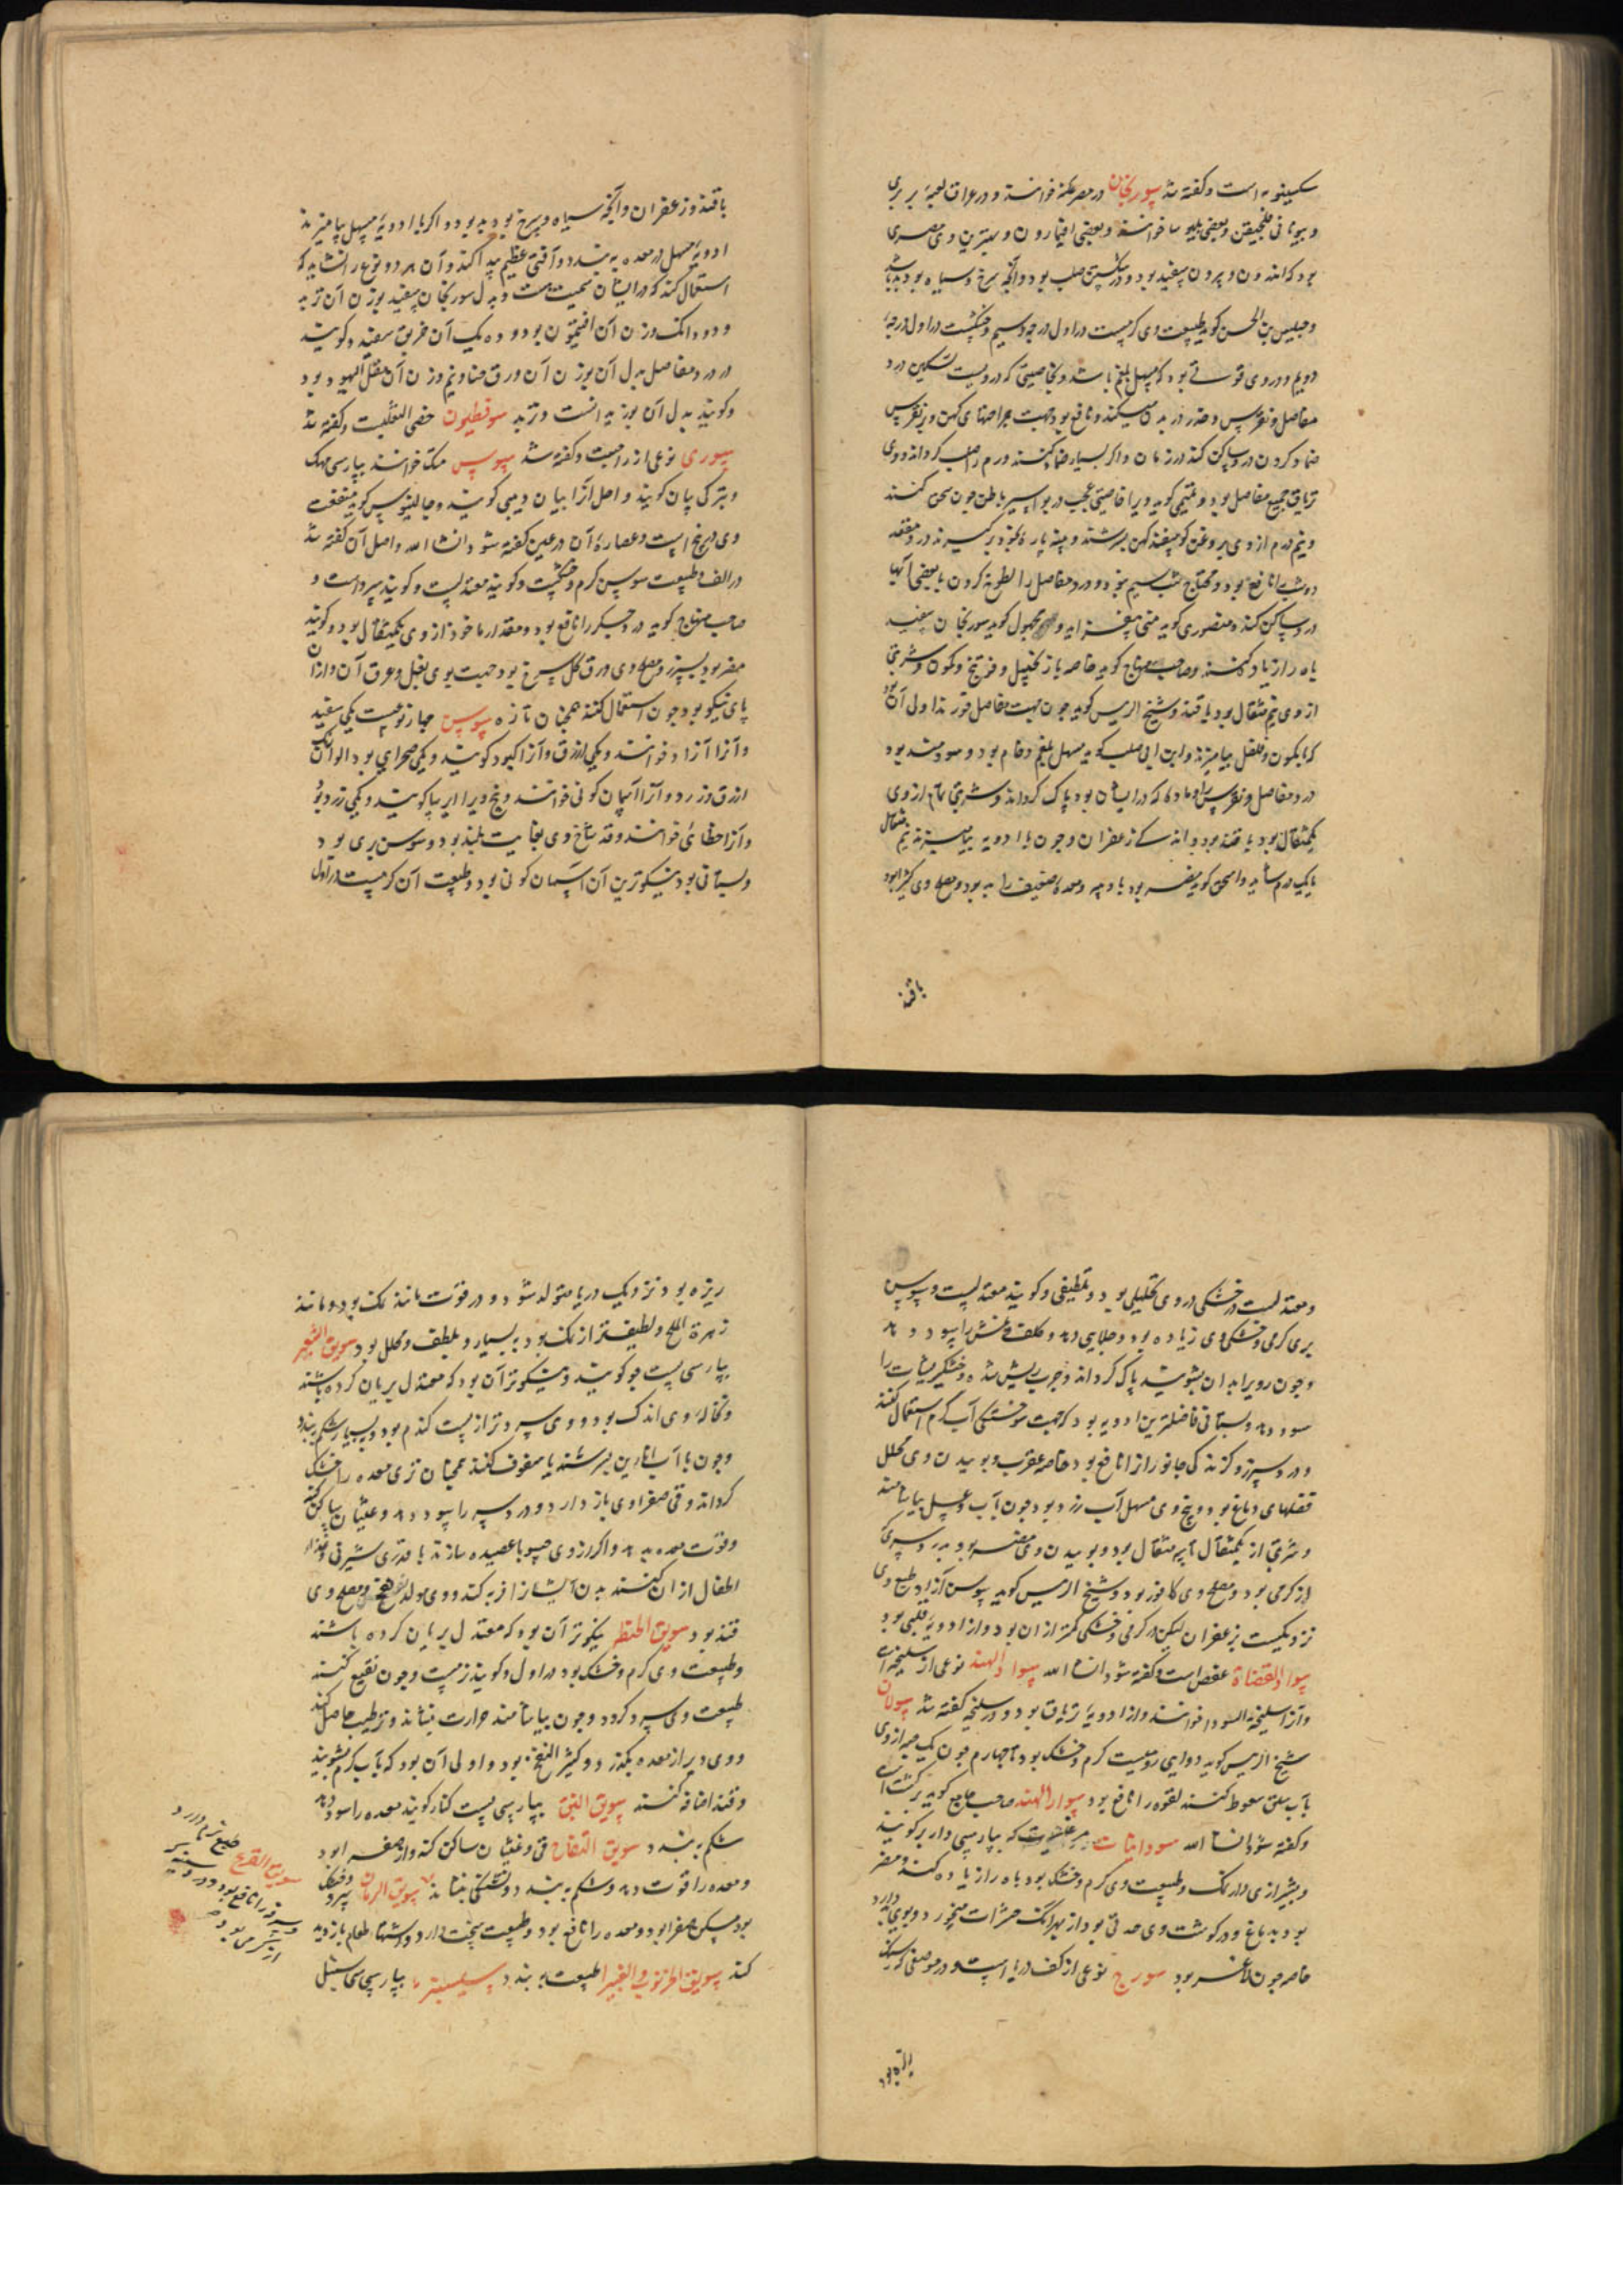 سکبینویه است و گفته شد سورنجان در مصر عکنه خوانند و در عراق لعبه بربری
و بیونانی فلخیقن و بعضی بلبوسا خوانند و بعضی افیمارون و بهترین وی مصری
بود که اندرون و بیرون سفید بود و در شکستن صلب بود و آنچه سرخ و سیاه بود بد باشد
و حبیش بن الحسن گوید طبیعت وی گرمست در اول درجه سیم و خشکست در اول درجه
دویم و در وی قوتی بود که مسهل بلغم باشد و بخاصیتی که درویست تسکین درد
مفاصل و نقرس و خدر در بدن میکند و نافع بود جهت جراحتهای کهن و بر نقرس
ضماد کردن درد ساکن کند در زمان و اگر بسیار ضماد کنند ورم را صلب گرداند و وی
تریاق جمیع مفاصل بود و تمیمی گوید ویرا خاصیتی عجب در بواسیر باطن چون سحق کنند
و نیم درم از وی بروغن گوسفند کهن بسرشند و پنبه پاره بخود برگیرند در مقعد
دو شب نافع بود و محتاج شب سیم نبود و درد مفاصل را لطوخ کردن با بعضی آبها
درد ساکن کند و منصوری گوید منی بیفزاید و مجهول گوید سورنجان سفید
باه را زیاد کند و صاحب منهاج گوید خاصه با زنجبیل و فوتنج و کمون و شربتی
از وی نیم مثقال بود با قند و شیخ الرییس گوید چون جهت مفاصل خورند اولی آن بود
که با کمون و فلفل بیامیزند و ابن ابی صلب گوید مسهل بلغم خام بود و سودمند بود
درد مفاصل و نقرس را و مادهٔ که در ایشان بود پاک گرداند و شربتی تمام از وی
یکمثقال بود با قند بود و اندکی زعفران و چون با ادویه بیامیزند نیم مثقال
تا یکدرم شاید و اسحق گوید مضر بود با و چه و معدهٔ ضعیف را بد بود و مصلح وی کثیرا بود
باقند
با قند و زعفران و آنچه سیاه و سرخ بود بد بود و اگر با ادویهٔ مسهل بیامیزند
ادویهٔ مسهل در معده ببندد و آفتی عظیم پیدا کند و آن هر دو نوع را نشاید که
استعمال کنند که در ایشان سمیت هست و بدل سورنجان سفید بوزن آن تربد
و دو دانک وزن آن افتیمون بود و ده یک آن خربق سفید و گویند
در درد مفاصل بدل آن بوزن آن ورق حنا و نیم وزن آن مقل الیهود بود
و گویند بدل آن بوزیدانست و تربد سوقطیون خصی الثعلبست و گفته شد
سوری نوعی از زاجست و گفته شد سوس متک خوانند بپارسی مهک
و بترکی پیان گویند و اصل آنرا بیان و میبی گویند و جالینوس گوید منفعت
وی در بیخ است و عصارهٔ آن در عین گفته شود انشاالله و اصل آن گفته شد
در الف و طبیعت سوس گرم و خشکست و گویند معتدلست و گویند سرد است و
صاحب منهاج گوید درد جگر را نافع بود و مقدار ماخوذ از وی یکمثقال بود و گویند
مضر بود بسپرز و مصلح وی ورق گل سرخ بود جهت بوی بغل و عرق آن و از آن
پای نیکو بود چون استعمال کنند همچنان تازه سوسن چهار نوعست یکی سفید
و آنرا آزاد خوانند و یکی ازرق و آنرا کبود گویند و یکی صحرایی بود الوان
ازرق و زرد و آنرا آسمان گونی خوانند و بیخ ویرا ایرسا گویند و یکی زرد بود
و آنرا خطائی خوانند و قد شاخ وی بغایت بلند بود و سوسن بری بود
و بستانی بود نیکوترین آن آسمان گونی بود و طبیعت آن گرمست در اول
و معتدلست در خشکی در وی تحلیلی بود و تلطیفی و گویند معتدلست و سوسن
بری گرمی و خشکی وی زیاده بود و جلایی دهد و کلف و نمش را سود دهد
و چون رویرا بدان بشویند پاک گرداند و جرب ریش شده و خشکریشات را
سود دهد و بستانی فاضلترین ادویه بود که جهت سوختگی آب گرم استعمال کنند
و درد سپرز و گزندگی جانورانرا نافع بود خاصه عقرب و بوییدن وی محلل
فضلهای دماغ بود و بیخ وی مسهل آب زرد بود چون آب و عسل بیاشامند
و شربتی از یکمثقال تا سه مثقال بود و بوییدن وی مضر بود بدرد سری که
از گرمی بود و مصلح وی کافور بود و شیخ الرییس گوید سوسن آزاد طبع وی
نزدیکست بزعفران لیکن در گرمی و خشکی کمتر از آن بود و از ادویهٔ قلبی بود
سواد القضاة عفص است و گفته شود انشاالله سواد الهند نوعی از سلیخه است
و آنرا سلیخة السودا خوانند و از ادویهٔ تریاق بود و در سلیخه گفته شد سولان
شیخ الرییس گوید دوایی رومیست گرم و خشک بود تا چهارم چون یک حبه از وی
بآب سلق سعوط کنند لقوه را نافع بود سوار الهند صاحب جامع گوید برکشت است
و گفته شود انشاالله سودانیات که بپارسی داربر گویند
و بشیرازی دارنک و طبیعت وی گرم و خشک بود باه را زیاده کند و مضر
بود بدماغ و در گوشت وی حدتی بود از بهر آنک حشرات میخورد و بوی بد دارد
خاصه چون لاغر بود سورج نوعی از کف دریا است و در موضعی که سنک
ریزه بود
ریزه بود نزدیک دریا متولد شود و در قوت مانند نمک بود و مانند
زهرة الملح و لطیفتر از نمک بود بسیار و ملطف و محلل بود سویق الشعیر
بپارسی پست جو گویند و نیکوتر آن بود که معتدل بریان کرده باشند
و نخالهٔ وی اندک بود و وی سردتر از پست گندم بود و بسیار شکم ببندد
و چون با آب انارین بسرشند یا سفوف کنند همچنان تری معده را خشک
گرداند و قی صفراوی باز دارد و درد سر را سود دهد و غثیان ساکن کند
و قوت معده بدهد و اگر از وی حسو یا عصیده سازند با قدری شیرینی و غذاء
اطفال از آن کنند بدن ایشانرا فربه کند و وی مولد نفخ بود و مصلح وی
قند بود سویق الحنطه نیکوتر آن بود که معتدل بریان کرده باشند
و طبیعت وی گرم و خشک بود در اول و گویند ترست و چون نقیع کنند
طبیعت وی سرد گردد و چون بیاشامند حرارت بنشاند و ترطیب حاصل کند
و وی دیر از معده بگذرد و کثیر النفخ بود و اولی آن بود که بآب گرم بشویند
و قند اضافه کنند سویق النبق بپارسی پست کنار گویند معده را سود دهد
شکم ببندد سویق التفاح قی و غثیان ساکن کند و از صفرا بود
و معده را قوت دهد و شکم ببندد و تشنگی بنشاند سویق الرمان سرد و خشک
بود مسکن صفرا بود و معده را نافع بود و طبیعت سخت دارد و اشتهاء طعام بازدید
کند سویق الخرنوب و الغبیرا طبیعت ببندد سیسنبر بپارسی سی سنبل
سویق القرع طبع نرم دارد و